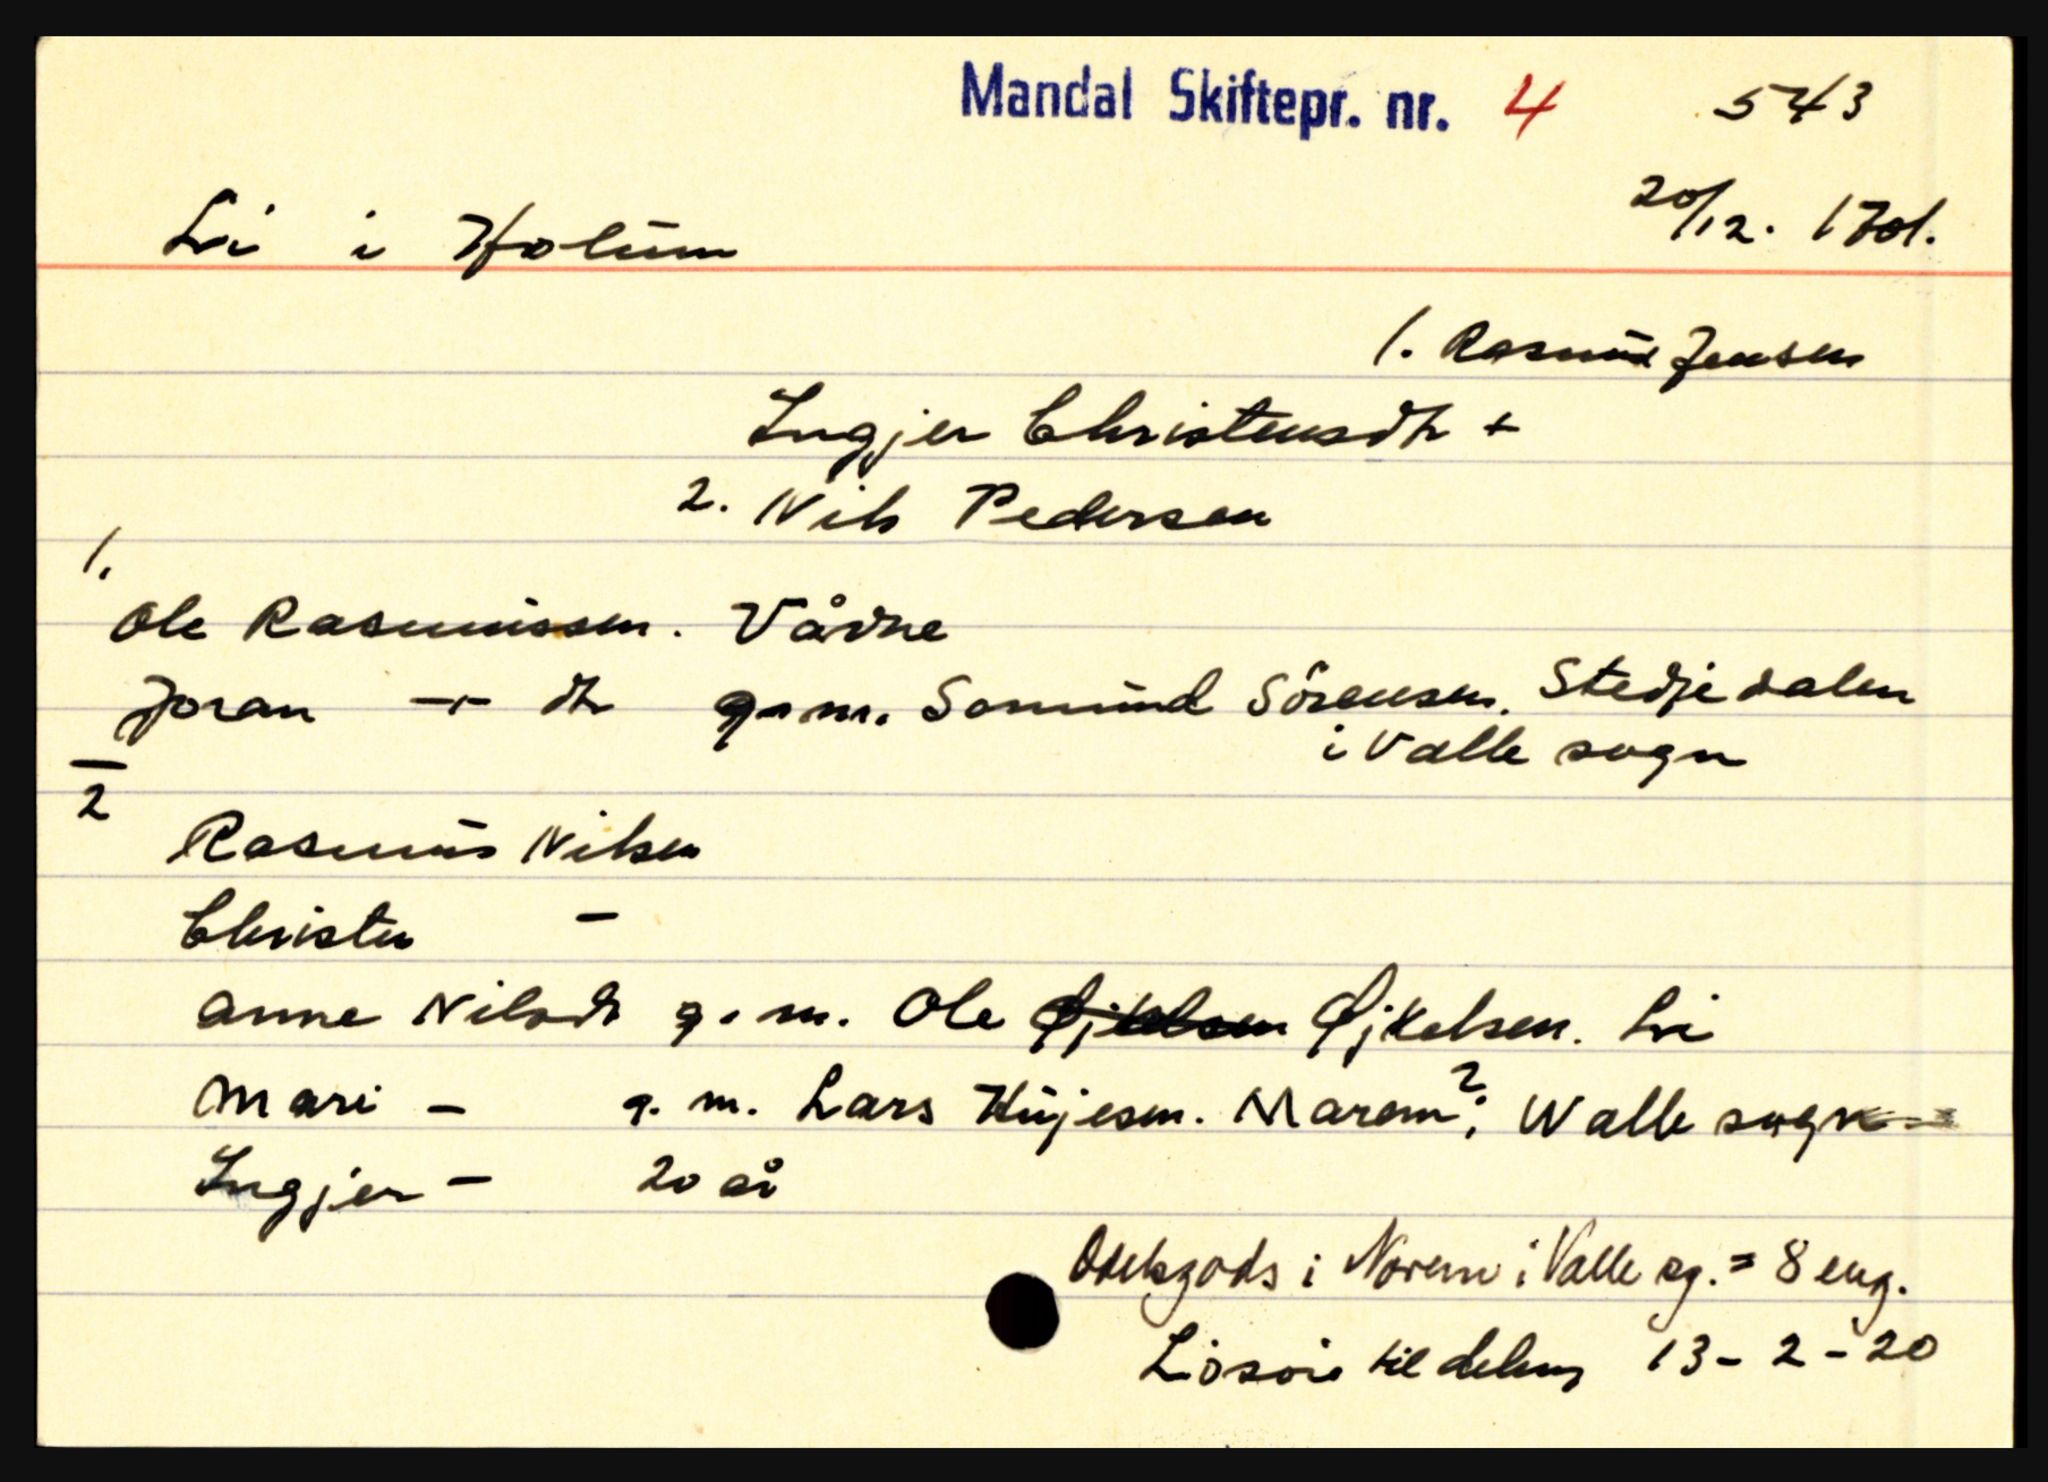 Mandal Skiftepr. nr. 4 543
20/12. 1701.
Li i Holum
1. Rasmus Jensen
Ingjer Christensdtr +
2. Nils Pedersen
1.
Ole Rasmussen. Vårne
Joran -"- dtr g.m. Somund Sörensen. Stedjedalen
i Valle sogn
2
Rasmus Nilsen
Christen -
Anne Nilsdtr g.m. Ole Øjkelsen. Li
Mari - g.m. Lars Hujesen. Marem?; Walle sogn
Ingjer - 20 år
Odelsgods i Norem i Valle sg. = 8 eng.
Lösöre til deling 13-2-20